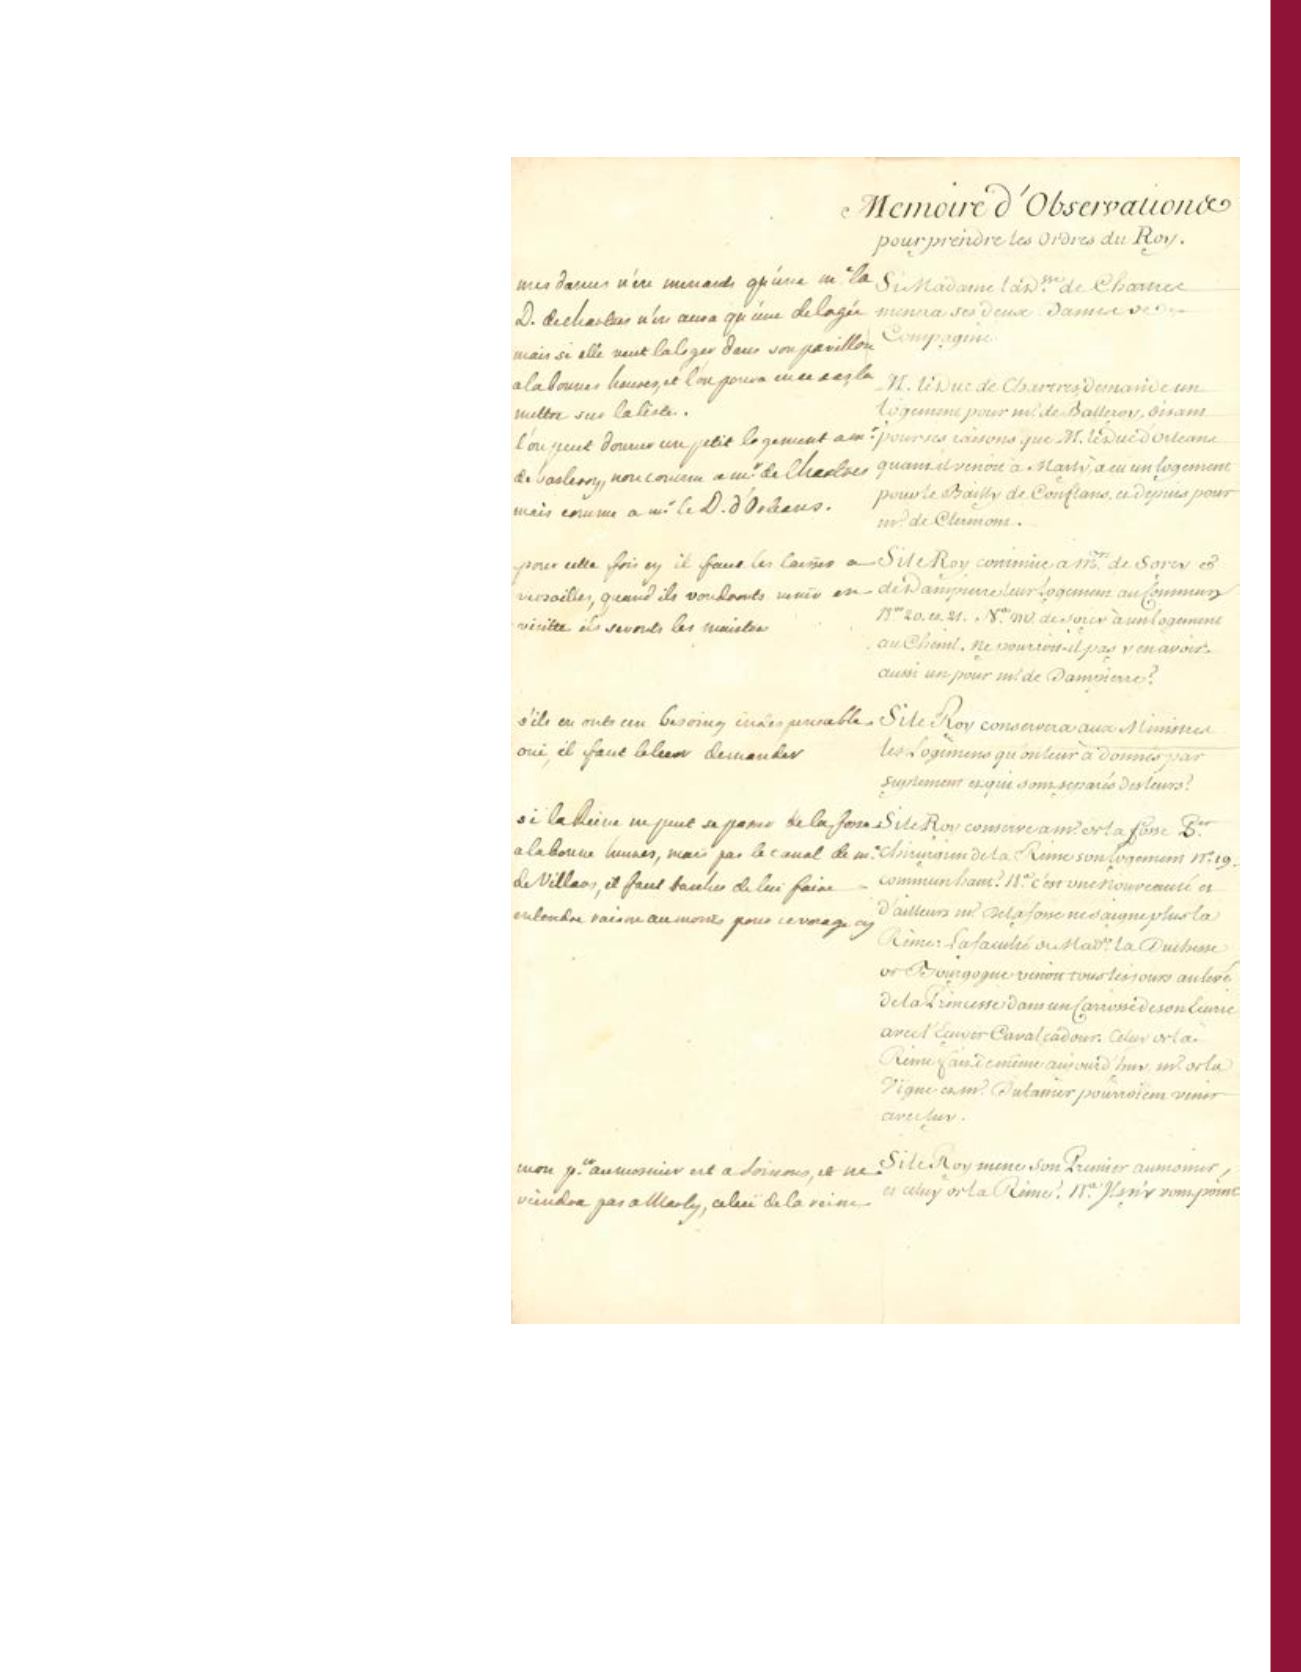 Memoire d'Observations
pour prendre les Ordres du Roy.
mes dames n'en menants qu'une me la
D. de chartres n'en aura qu'une de logée
mais si elle veut la loger dans son pavillon
a la bonnes heures, et l'on poura en ce cas la
mettre sur la liste.
l'on peut donner un petit logement a mr
de baleroy, non comme a mr de Chartres
mais comme a mr le D. d'Orleans.
pour cette fois cy il faut les laisser a
versailles, quand ils voudronts venir en
visitte ils seronts les maistre
s'ils en onts eu besoing indespensable
oui, il faut le leur demander
si la Reine ne peut se passer de la fosse
a la bonne heures, mais par le canal de me
de Villars, il faut tascher de lui faire
entendre raison au moins pour ce voyage cy
mon p.er aumosnier est a soissons, et ne
viendra pas a Marly, celui de la reine
Si Madame la D.sse de Chartres
menera ses deux Dames de
Compagnie.
M. le Duc de Chartres, demande un
logement pour mr. de Balleroy, disant
pour ses raisons que M. le Duc d'Orleans
quand il venoit à Marly, a eu un logement
pour le Bailly de Conflans, et depuis pour
mr. de Clermont.
Si le Roy continue a mrs. de Sorcy et
de Dampierre leur logement au Commun
Nos 20. et 21. Na. mr. de Sorcy a un logement
au Chenil, ne pourroit-il pas y en avoir
aussi un pour mr. de Dampierre?
Si le Roy conservera aux Ministres
les Logemens qu'on leur a donnés par
suplement et qui sont separés des leurs?
Si le Roy conserve a mr. de la fosse P.er
Chirurgien de la Reine son logement No. 19.
commun haut? Na. c'est une nouveauté et
d'ailleurs mr. de la fosse ne saigne plus la
Reine. La faculté de Made. la Duchesse
de Bourgogne venoit tous les jours au levé
de la Princesse dans un Carrosse de son Ecurie
avec l'Ecuyer Cavalcadour. Celuy de la
Reine fait de même aujourd'huy. mr. de la
Vigne et mr. pourroient venir
avec luy.
Si le Roy mene son Premier aumonier,
et celuy de la Reine? Na. Ils n'y vont point